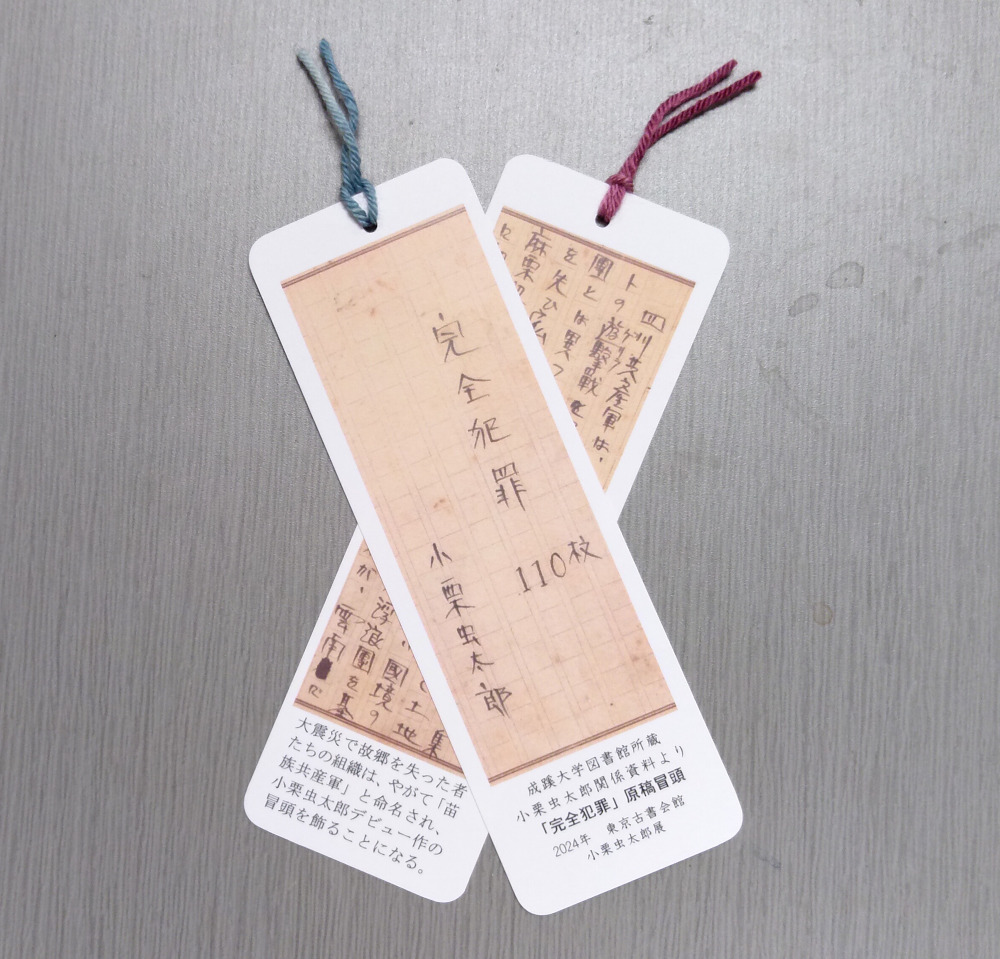 完全犯罪
110枚
小栗虫太郎
成蹊大学図書館所蔵
小栗虫太郎関係資料より
「完全犯罪」原稿冒頭
2024年 東京古書会館
小栗虫太郎展
四川共産軍は、
トの遊撃戦
團とは異つ
を失ひ
麻栗
集
土地
國境の
浮浪團を基
が、雲南
大震災で故郷を失った者
たちの組織は、やがて「苗
族共産軍」と命名され、
小栗虫太郎デビュー作の
冒頭を飾ることになる。